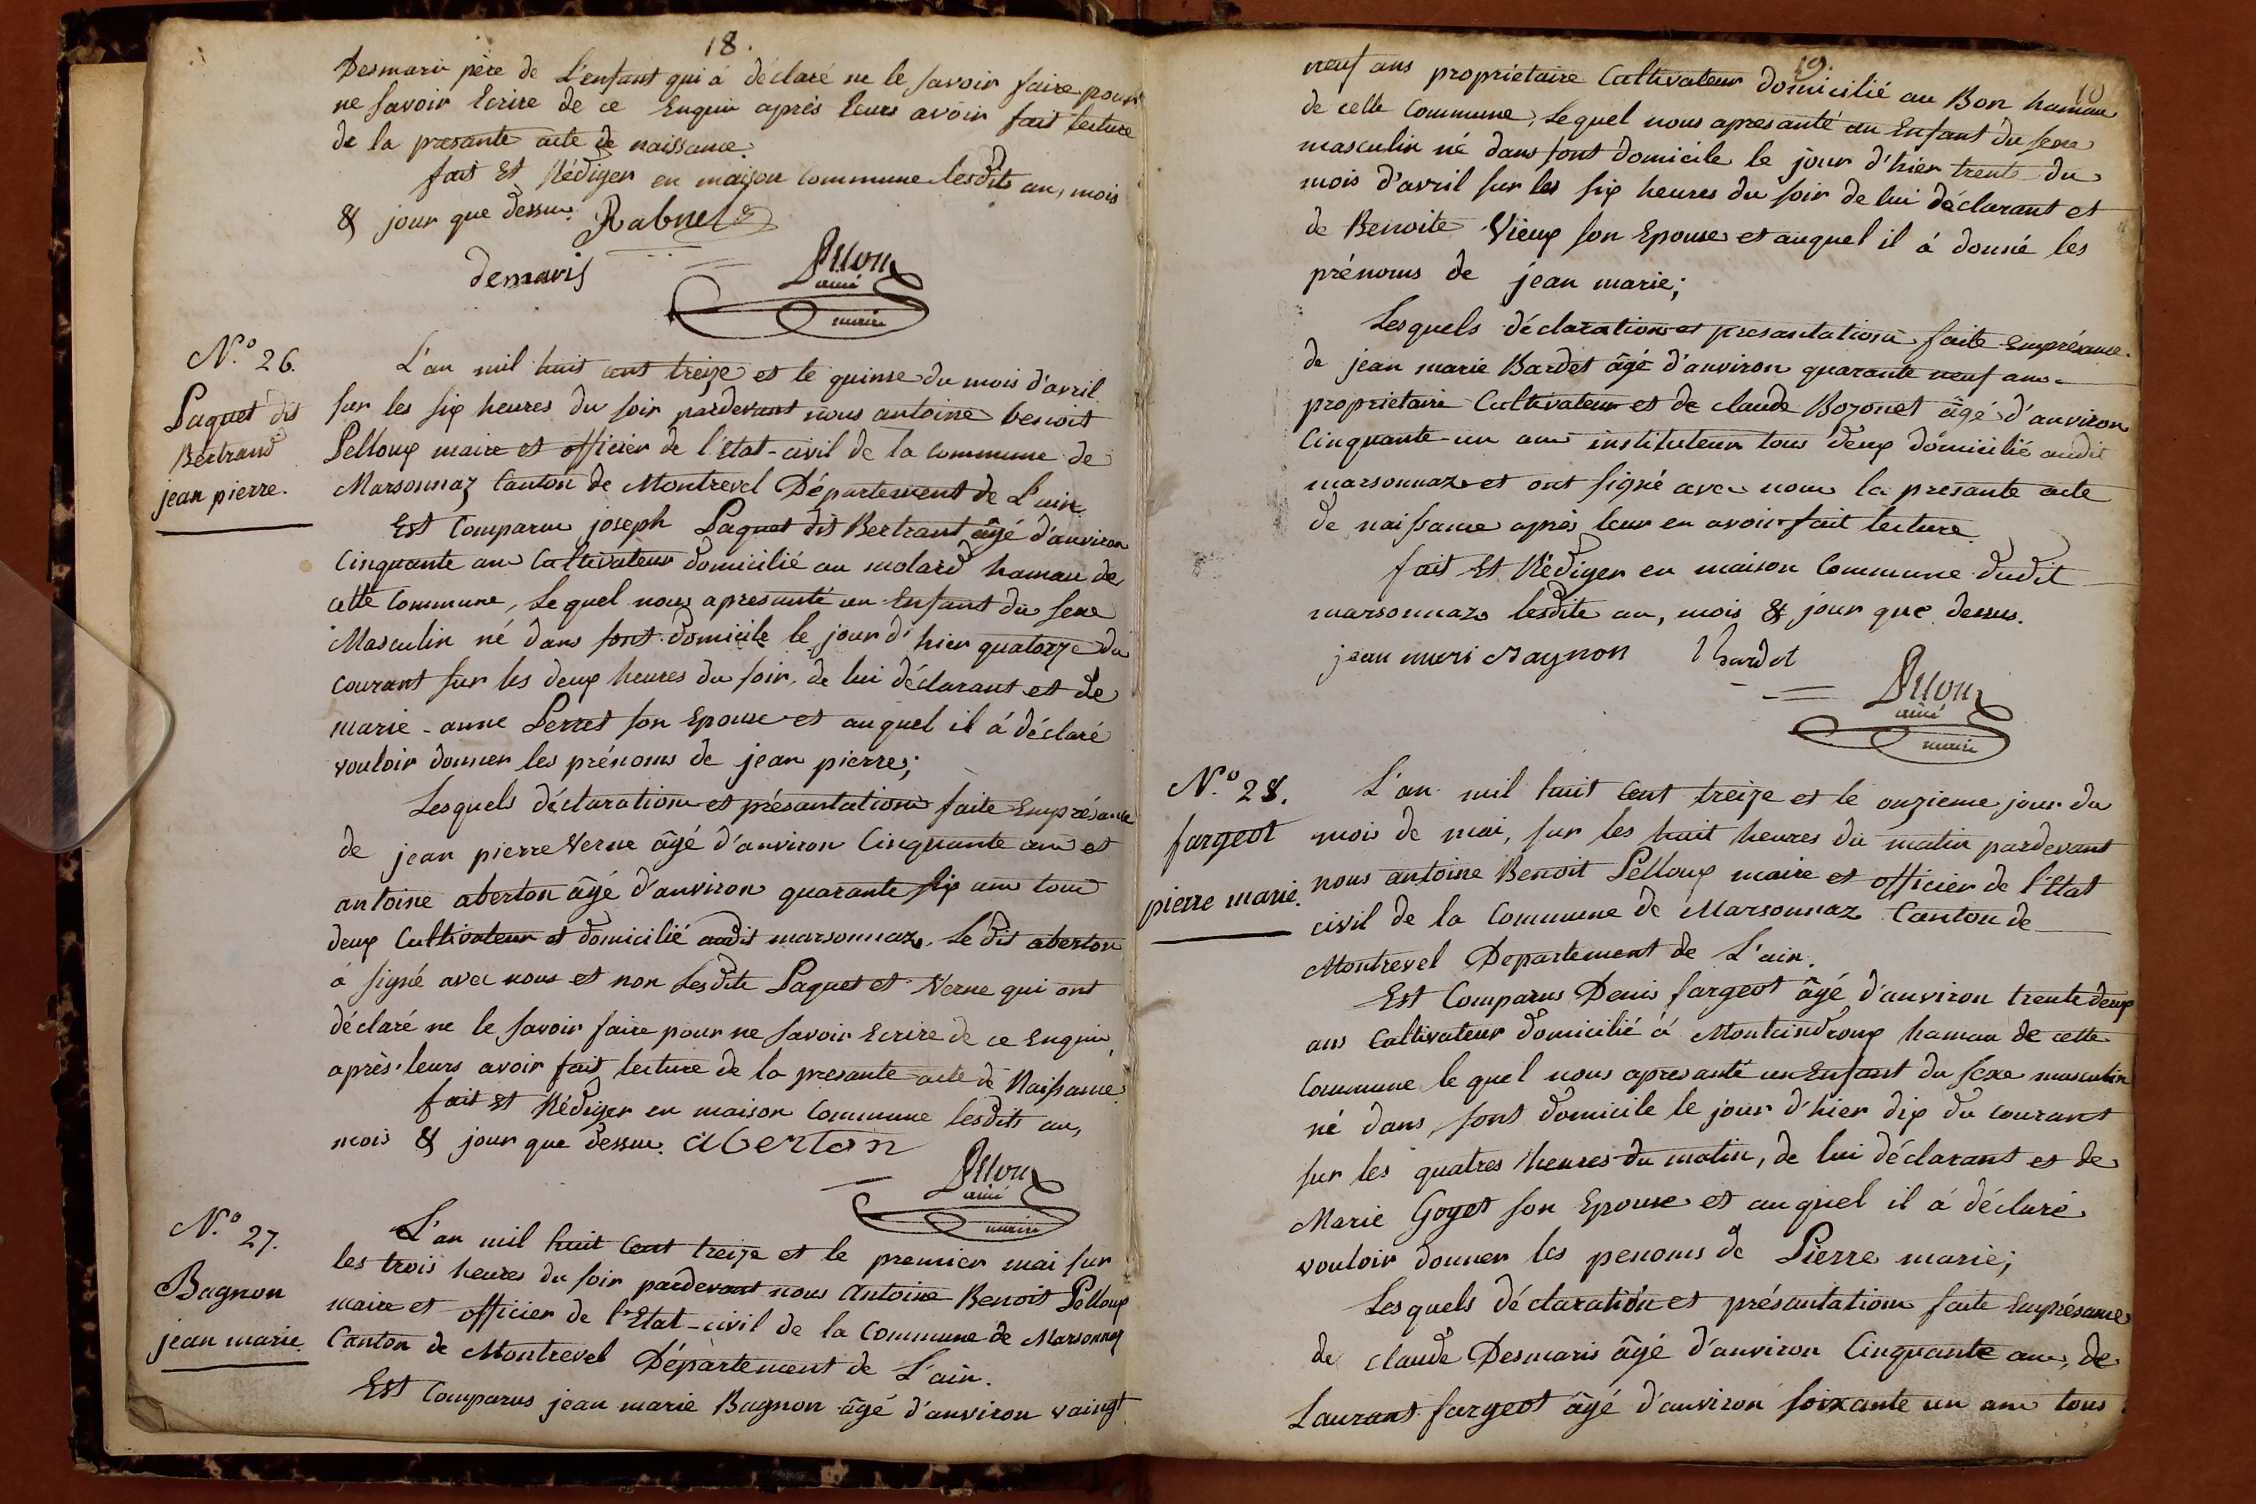 18.
Desmaris père de L'enfant qui á déclaré ne le savoir faire pour
ne savoir Ecrire de ce Enquir après leurs avoir fait lecture
de la presante acte de naissance.
fait Et Rédiger en maison Commune lesdits an, mois
& jour que dessus. Rabuel
demaris
Pelloux
ainé
maire
N.º 26.
Paquet dit
Bertrand
jean pierre.
L'an mil huit cent treize et le quinse du mois d'avril
sur les six heures du soir pardevant nous antoine benoit
Pelloux maire et officier de l'Etat-civil de la Commune de
Marsonnaz Canton de Montrevel Département de L'ain.
Est Comparu joseph Paquet dit Bertrant âgé d'anviron
Cinquante ans Cultivateur domicilié au molard hamau de
cette Commune, Lequel nous apresanté un Enfant du sexe
Masculin né dans sont domicile le jour d'hier quatorze du
courant sur les deux heures du soir, de lui déclarant et de
marie-anne Perret son Epouse et auquel il á déclaré
vouloir donner les prénoms de jean pierre;
Lesquels déclaration et présantation faite Emprésance
de jean pierre Verne âgé d'anviron Cinquante ans et
antoine aberton âgé d'anviron quarante six ans tous
deux Cultivateur et domicilié audit marsonnaz, Le dit aberton
á signé avec nous et non Lesdits Paquet et Verne qui ont
déclaré ne le savoir faire pour ne savoir Ecrire de ce Enquir,
après leurs avoir fait lecture de la presante acte de Naissance.
fait Et Rédiger en maison Commune lesdits an,
mois & jour que dessus. aberton
Pelloux
ainé
maire
N.º 27.
Bagnon
jean marie.
L'an mil huit Cent treize et le premier mai sur
les trois heures du soir pardevant nous Antoine Benoit Pelloux
maire et officier de l'Etat-civil de la Commune de Marsonnaz
Canton de Montrevel Département de L'ain.
Est Comparus jean marie Bagnon âgé d'anviron vaingt
19.
10
neuf ans proprietaire Cultivateur domicilié au Bon hamau
de cette Commune, Lequel nous apresanté un Enfant du sexe
masculin né dans sont domicile le jour d'hier trente du
mois d'avril sur les six heures du soir de lui déclarant et
de Benoite Vieux son Epouse et auquel il á donné les
prénoms de jean marie;
Lesquels déclaration et presantation faite Emprésance
de jean marie Bardet âgé d'anviron quarante neuf ans
proprietaire Cultivateur et de claude Bozonet âgé d'anviron
Cinquante-un ans instituteur tous deux domicilié audit
marsonnaz et ont signé avec nous la presante acte
de naissance après leur en avoir fait lecture.
fait Et Rédiger en maison Commune dudit
marsonnaz lesdits an, mois & jour que dessus.
jean mari Bagnon Bardet
Pelloux
ainé
maire
N.º 28.
fargeot
pierre marie.
L'an mil huit Cent treize et le onzieme jour du
mois de mai, sur les huit heures du matin pardevant
nous antoine Benoit Pelloux maire et officier de l'Etat
civil de la Commune de Marsonnaz Canton de
Montrevel Departement de L'ain.
Est Comparus Denis fargeot âgé d'anviron trente deux
ans Cultivateur domicilié á Montcindroux hamau de cette
Commune lequel nous apresanté un Enfant du séxe masculin
né dans sont domicile le jour d'hier dix du courant
sur les quatres heures du matin, de lui déclarant et de
Marie Goyet son Epouse et auquel il á déclaré
vouloir donner les penoms de Pierre marie;
Lesquels déclaration et présantation faite Emprésance
de claude Desmaris âgé d'anviron Cinquante ans, de
Laurant fargeot âgé d'anviron soixante un ans tous